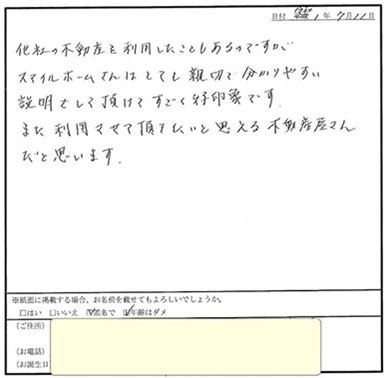 日付 令和 1年 7月11日
他社の不動産を利用したこともあるのですが
スマイルホームさんはとても親切で分かりやすい
説明をして頂けてすごく好印象です.
また利用させて頂きたいと思える不動産屋さん
だと思います.
※紙面に掲載する場合、お名前を載せてもよろしいでしょうか。
□はい □いいえ ☑匿名で ☑年齢はダメ
(ご住所)
(お電話)
(お誕生日)